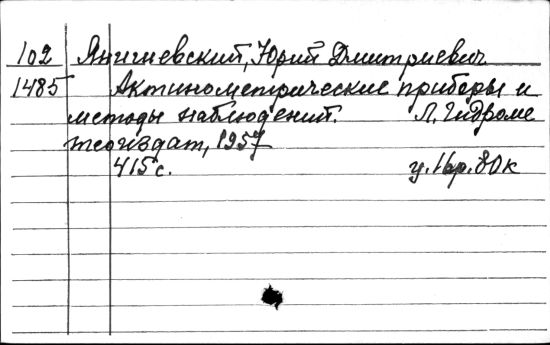 102 Янишевский, Юрий Дмитриевич
1485 Актинометрические приборы и
методы наблюдений. Л. Гидроме
теоиздат, 1957
415 с. ц. 16р. 80к